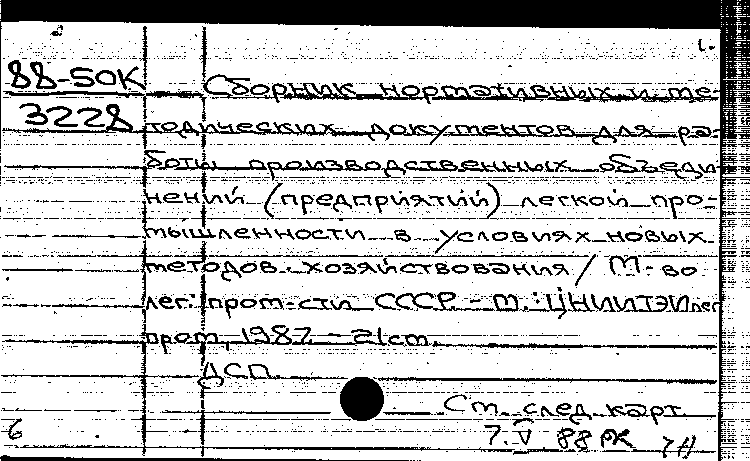 1.
88-50К Сборник нормативных и ме-
3228 тодических документов для ра-
боты производственных объеди
нений (предприятий) легкой про-
мышленности в условиях новых
методов хозяйствования / М-во
лег. пром-сти СССР. - М.: ЦНИИТЭИлег
пром, 1987. - 21 см.
ДСП.
См. след. карт.
6 7.V 88 РК